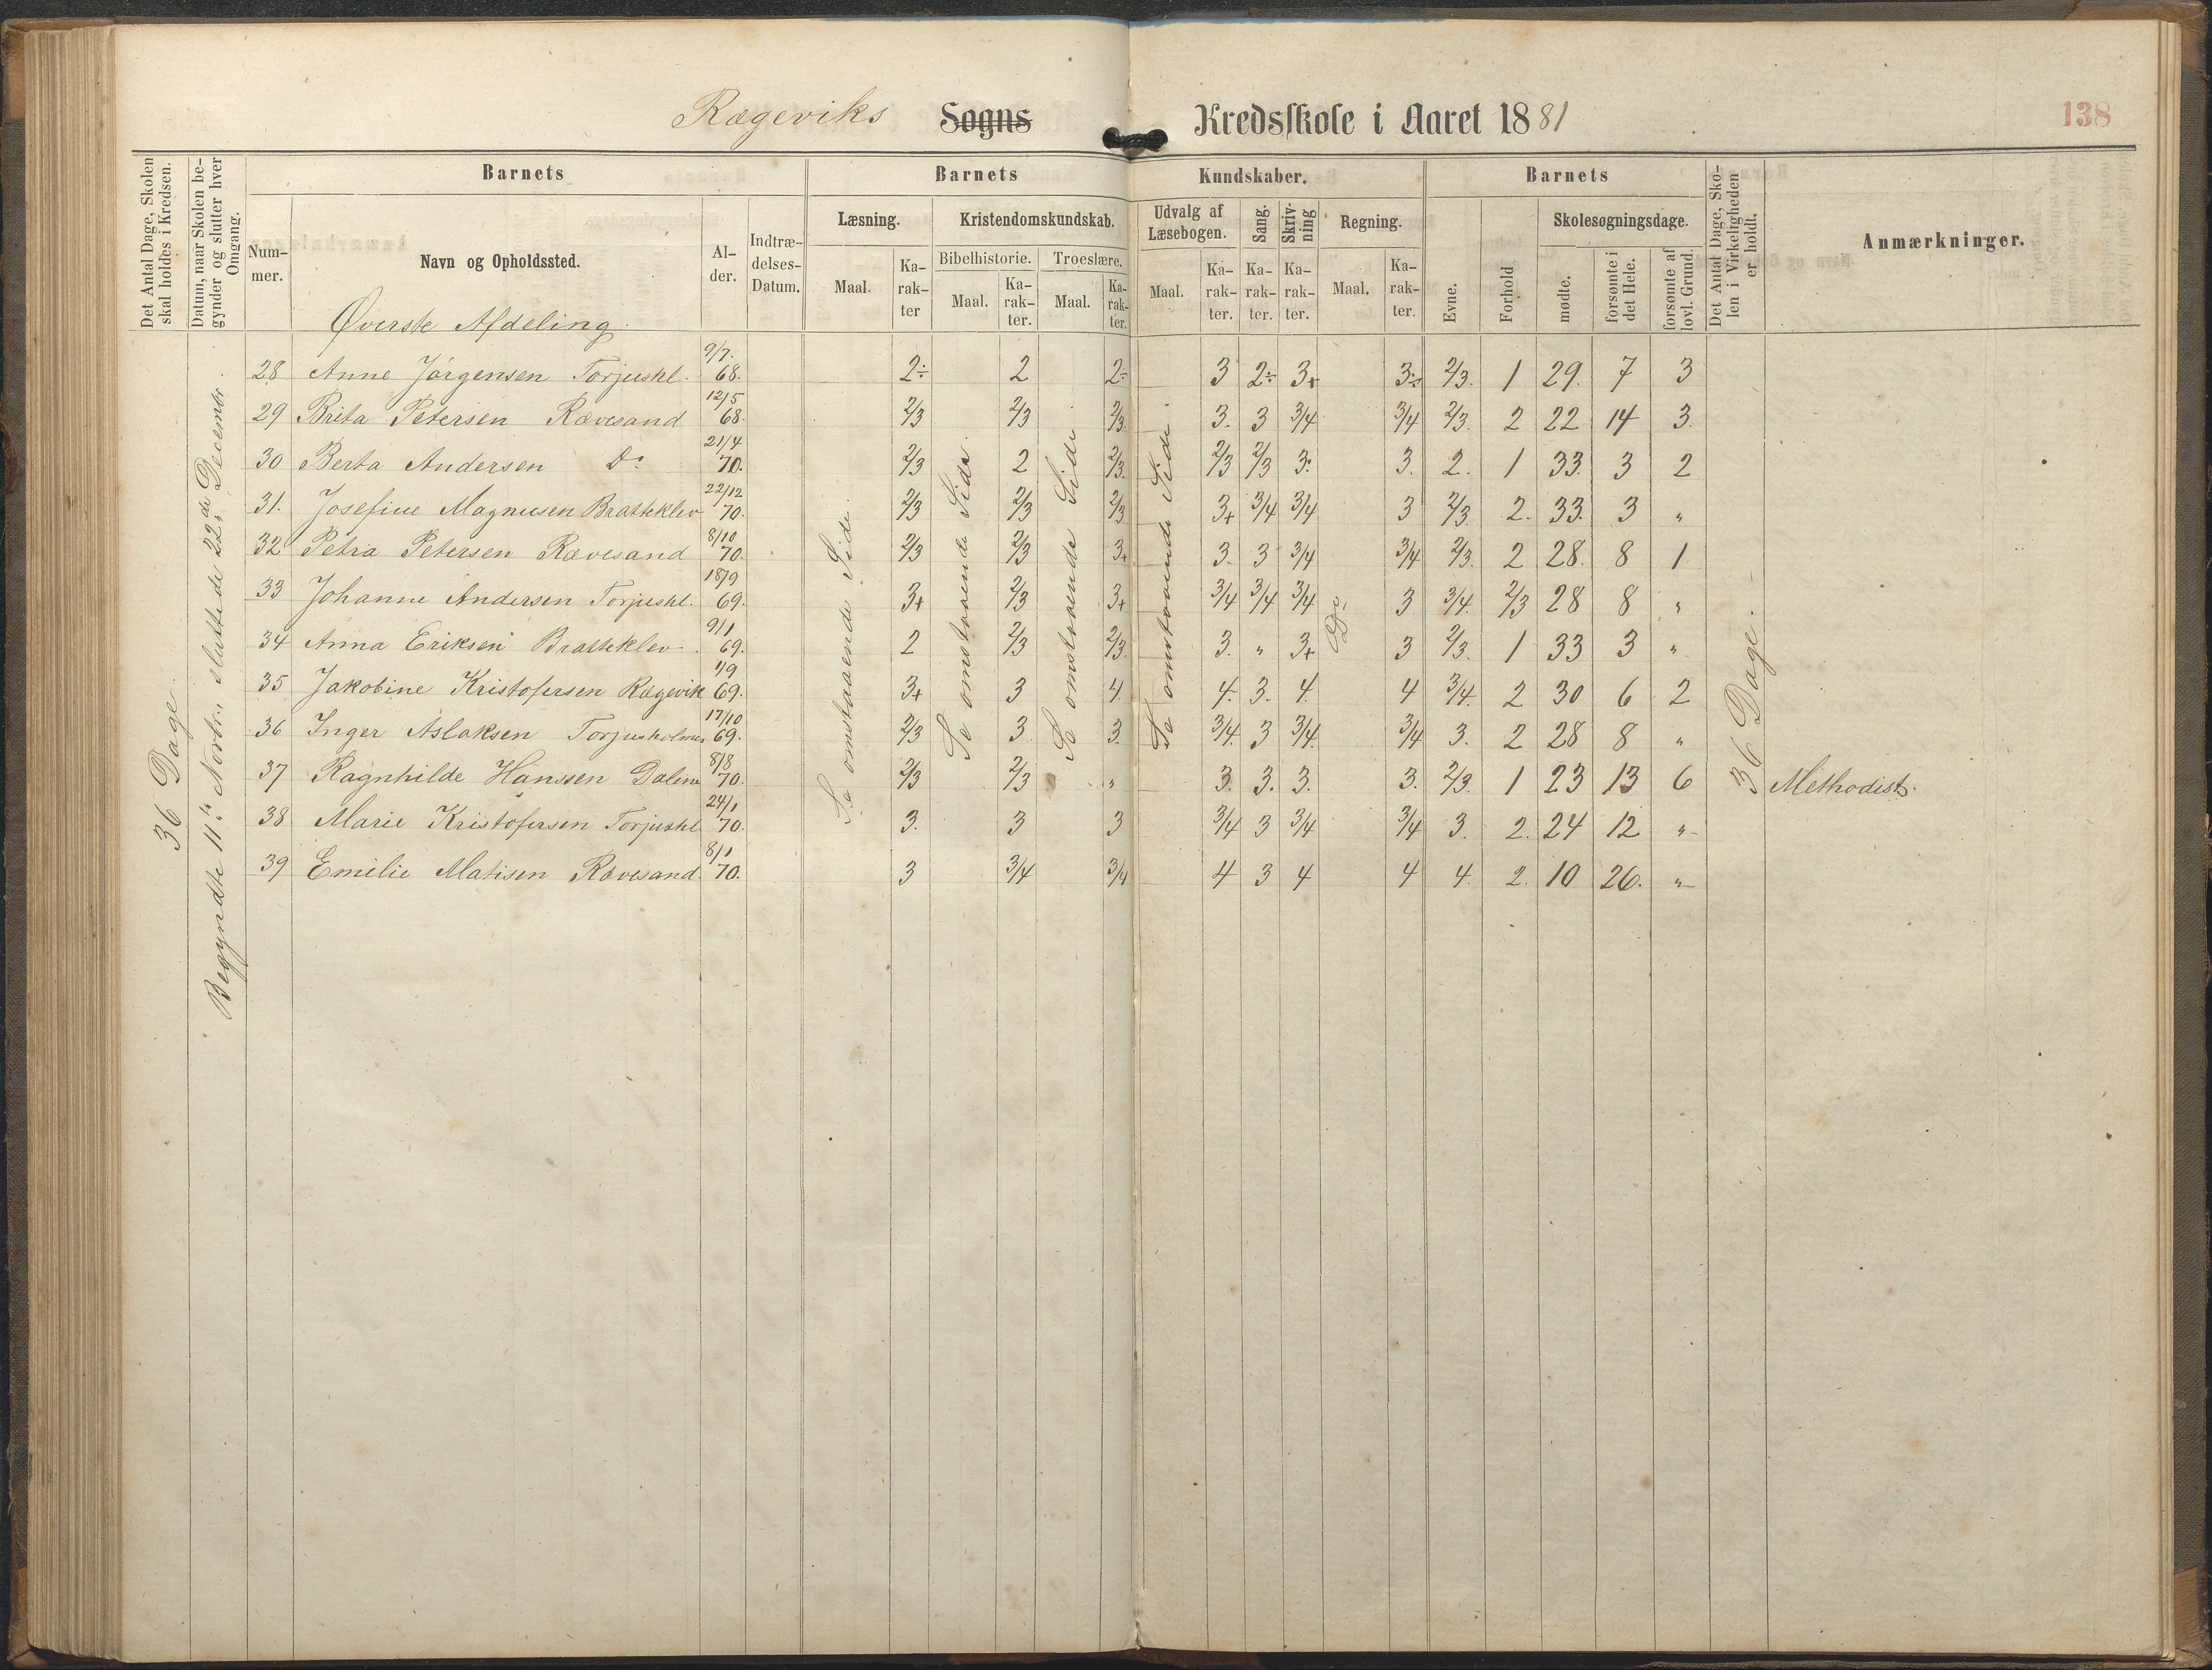 Rægeviks Sogns Kredsskole i Aaret 1881
138
Det Antal Dage, Skolen skal holdes i Kredsen.
Datum, naar Skolen begynder og slutter hver Omgang.
Barnets
Nummer.
Navn og Opholdssted.
Alder.
Indtrædelses-Datum.
Barnets Kundskaber.
Læsning.
Maal.
Karakter
Kristendomskundskab.
Bibelhistorie.
Maal.
Karakter.
Troeslære.
Maal.
Karakter.
Udvalg af Læsebogen.
Maal.
Karakter.
Sang.
Karakter.
Skrivning
Karakter.
Regning.
Maal.
Karakter.
Barnets
Evne.
Forhold
Skolesøgningsdage.
mødte.
forsømte i det Hele.
forsømte af lovl. Grund.
Det Antal Dage, Skolen i Virkeligheden er holdt.
Anmærkninger.
Øverste Afdeling.
36 Dage.
Begyndte 11te Novbr., sluttede 22de Decembr.
Se omstaaende Side.
Se omstaaende Side.
Se omstaaende Side.
Se omstaaende Side.
Do
36 Dage.
28 Anne Jørgensen Torjushl. 9/7. 68. 2÷ 2 2÷ 3 2÷ 3+ 3÷ 2/3. 1 29. 7 3
29 Brita Petersen Rævesand 12/5 68. 2/3 2/3 2/3. 3. 3 3/4 3/4 2/3. 2 22 14 3.
30 Berta Andersen Do 21/4 70. 2/3 2 2/3. 2/3 2/3 3. 3. 2. 1 33. 3 2
31. Josefine Magnusen Bratteklev 22/12 70. 2/3 2/3 2/3 3+ 3/4 3/4 3 2/3 2. 33. 3 "
32 Petra Petersen Rævesand 8/10 70. 2/3 2/3 3+ 3. 3 3/4 3/4 2/3. 2 28. 8 1
33 Johanne Andersen Torjushl. 18/9 69. 3+ 2/3 3+ 3/4 3/4 3/4 3 3/4. 2/3 28 8 "
34 Anna Eriksen Bratteklev. 9/1 69. 2 2/3 2/3. 3. " 3+ 3 2/3. 1 33 3 "
35 Jakobine Kristofersen Rægevik 1/9 69. 3+ 3 4. 4. 3. 4. 4 3/4. 2 30 6 2
36 Inger Aslaksen Torjusholmen 17/10 69. 2/3 3. 3. 3/4. 3 3/4. 3/4 3. 2 28 8 "
37 Ragnhilde Hanssen Dalene 8/8 70. 2/3 2/3 " 3. 3. 3. 3. 2/3. 1 23 13 6 Methodist.
38 Marie Kristofersen Torjushl 24/1 70. 3. 3 3 3/4 3 3/4 3/4 3. 2. 24 12 "
39 Emilie Matisen Rævesand. 8/1 70. 3 3/4 3/4 4 3 4 4 4. 2. 10 26. "